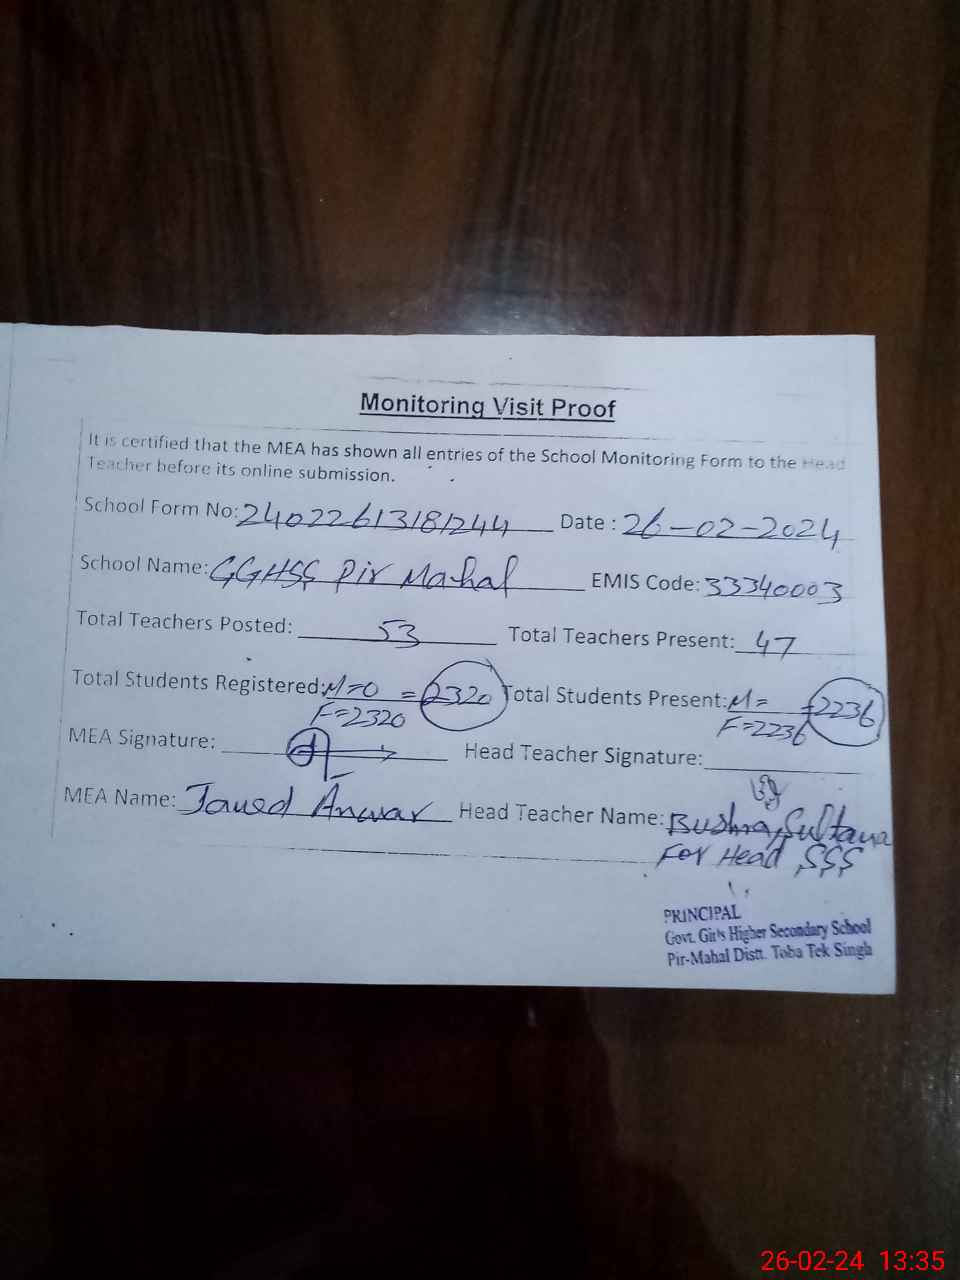 Monitoring Visit Proof
It is certified that the MEA has shown all entries of the School Monitoring Form to the Head
Teacher before its online submission.
School Form No: 24022613181244 Date : 26-02-2024
School Name: GGHSS Pir Mahal EMIS Code: 33340003
Total Teachers Posted: 53 Total Teachers Present: 47
Total Students Registered: M=0 = 2320 Total Students Present: M= = 2236
F=2320 F=2236
MEA Signature: Head Teacher Signature:
MEA Name: Javed Anwar Head Teacher Name: Bushra Sultana
For Head SSS
PRINCIPAL
Govt. Girls Higher Secondary School
Pir-Mahal Distt. Toba Tek Singh
26-02-24 13:35